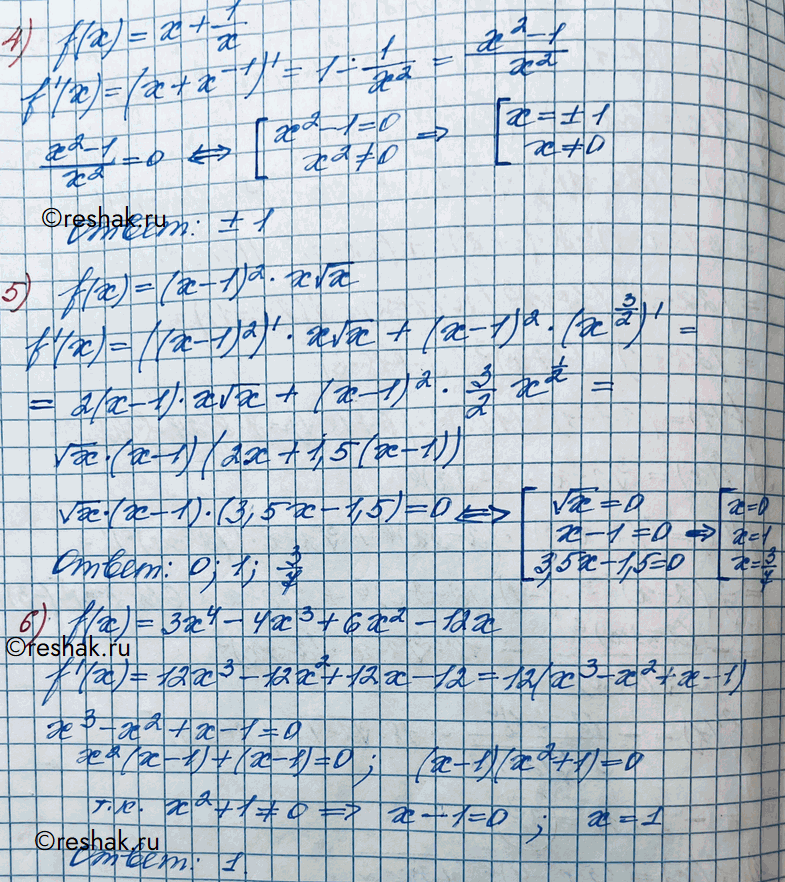 4) f(x) = x + 1/x
f'(x) = (x + x⁻¹)' = 1 - 1/x² = (x²-1)/x²
(x²-1)/x² = 0 ⇔ [ x²-1=0 ⇒ [ x = ±1
x² ≠ 0 x ≠ 0
©reshak.ru
Ответ: ±1
5) f(x) = (x-1)² · x√x
f'(x) = ((x-1)²)' · x√x + (x-1)² · (x^(3/2))' =
= 2(x-1) · x√x + (x-1)² · 3/2 x^(1/2) =
√x · (x-1)(2x + 1,5(x-1))
√x · (x-1) · (3,5x - 1,5) = 0 ⇔ [ √x = 0 ⇒ [ x=0
x-1 = 0 x=1
3,5x-1,5=0 x=3/7
Ответ: 0; 1; 3/7
6) f(x) = 3x⁴ - 4x³ + 6x² - 12x
©reshak.ru
f'(x) = 12x³ - 12x² + 12x - 12 = 12(x³ - x² + x - 1)
x³ - x² + x - 1 = 0
x²(x-1) + (x-1) = 0 ; (x-1)(x²+1) = 0
т.к. x²+1 ≠ 0 ⇒ x-1=0 ; x = 1
©reshak.ru
Ответ: 1.